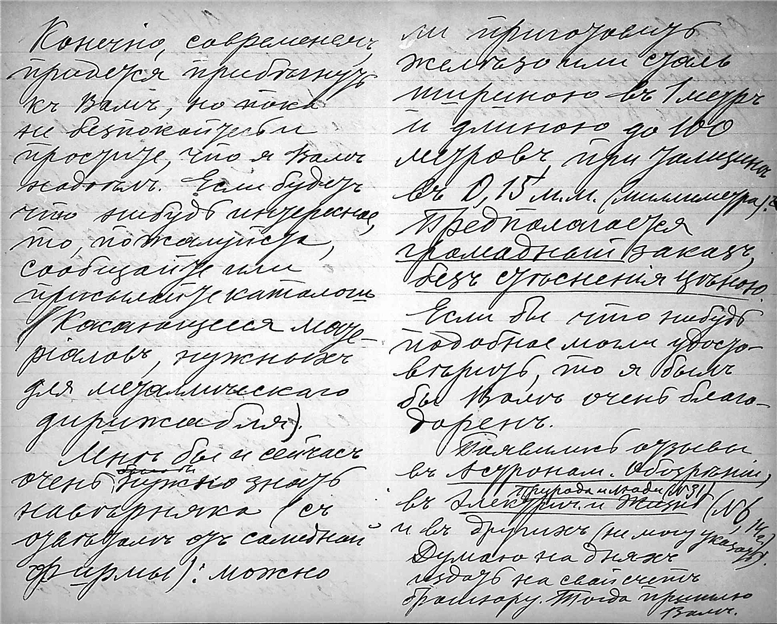 Конечно, современемъ,
придется прибѣгнуть
къ Вамъ, но пока
не безпокойтесь и
простите, что я Вамъ
надоѣлъ. Если будетъ
что нибудь интересное,
то, пожалуйста,
сообщайте или
присылайте каталоги
(касающееся мате-
ріаловъ, нужныхъ
для металлическаго
дирижабля).
Мнѣ бы и сейчасъ
очень нужно знать
навѣрняка (съ
отвѣтомъ отъ самой
фирмы): можно
ли приготовить
желѣзо или сталь
шириною въ 1 метръ
и длиною до 100
метровъ, при толщинѣ
въ 0,15 м.м. (миллиметра)?
Предполагается
громадный заказъ,
безъ стѣсненія цѣною.
Если бы что нибудь
подобное могли удосто-
вѣрить, то я былъ
бы Вамъ очень благо-
даренъ.
Появились отзывы
въ Астроном. Обозрѣніи,
Природа и люди (№ 31)
въ Электрич. и Жизнь (№ 6,
и въ другихъ (не могу указать).
Думаю на дняхъ
издать на свой счетъ
брошюру. Тогда пришлю
Вамъ.